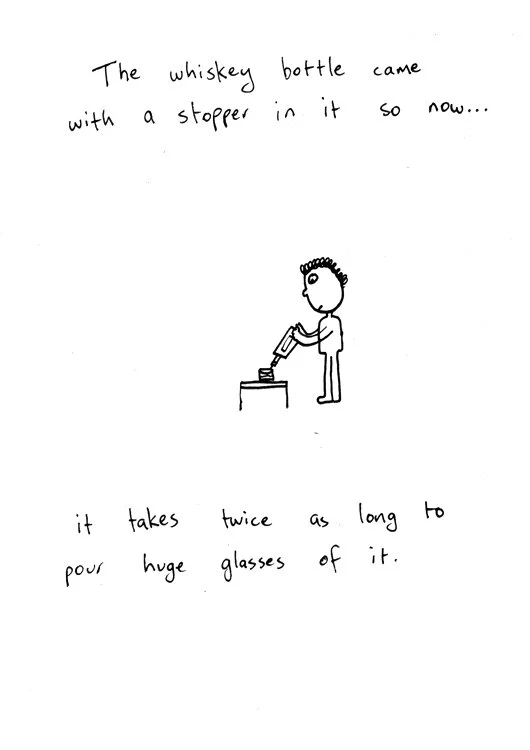 The whiskey bottle came
with a stopper in it so now...
it takes twice as long to
pour huge glasses of it.